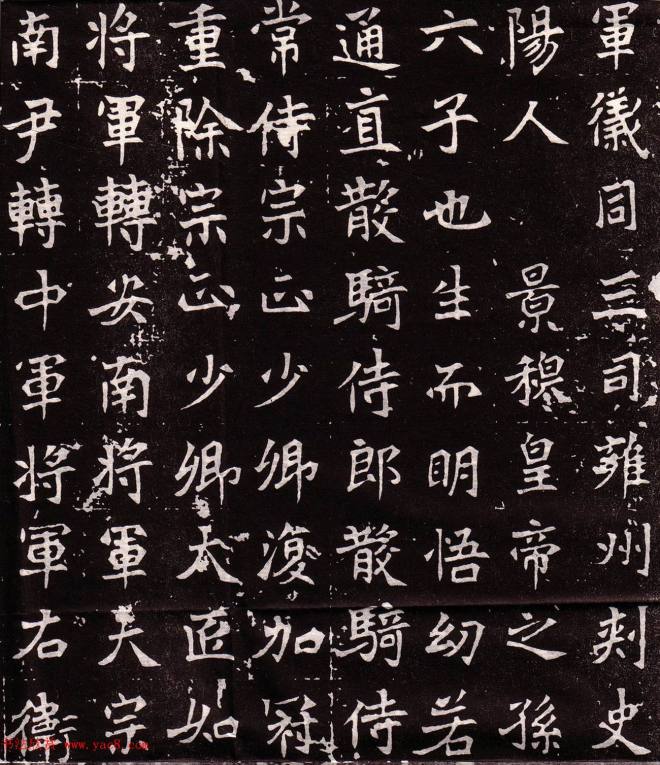 軍儀同三司雍州刾史
陽人 景穆皇帝之孫
六子也生而明悟幼若
通直散騎侍郎散騎侍
常侍宗正少卿復加冠
重除宗正少卿太匠如
將軍轉安南將軍大宗
南尹轉中軍將軍右衛
www.yac8.com